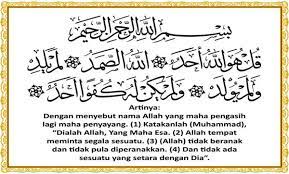 بِسْمِ اللّٰهِ الرَّحْمٰنِ الرَّحِيْمِ
قُلْ هُوَ اللّٰهُ أَحَدٌ اللّٰهُ الصَّمَدُ لَمْ يَلِدْ
وَلَمْ يُولَدْ وَلَمْ يَكُنْ لَهُ كُفُوًا أَحَدٌ
Artinya:
Dengan menyebut nama Allah yang maha pengasih
lagi maha penyayang. (1) Katakanlah (Muhammad),
"Dialah Allah, Yang Maha Esa. (2) Allah tempat
meminta segala sesuatu. (3) (Allah) tidak beranak
dan tidak pula diperanakkan. (4) Dan tidak ada
sesuatu yang setara dengan Dia".